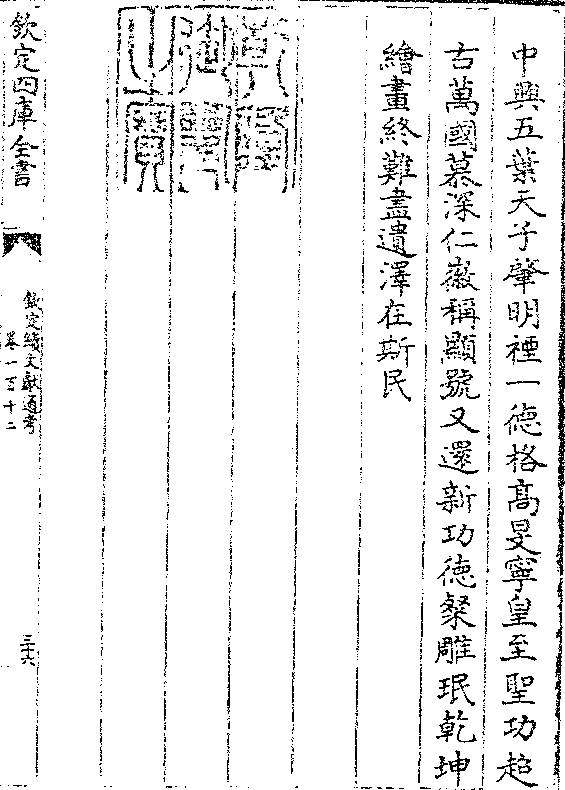 中興五葉天子肇明禋一德格髙旻寧皇至聖功超
古萬國慕深仁徽稱顯號又還新功德粲雕珉乾坤
繪畫終難盡遺澤在斯民
乾隆
御覽
之寶
欽定四庫全書
欽定續文獻通考
卷一百十二
三十六